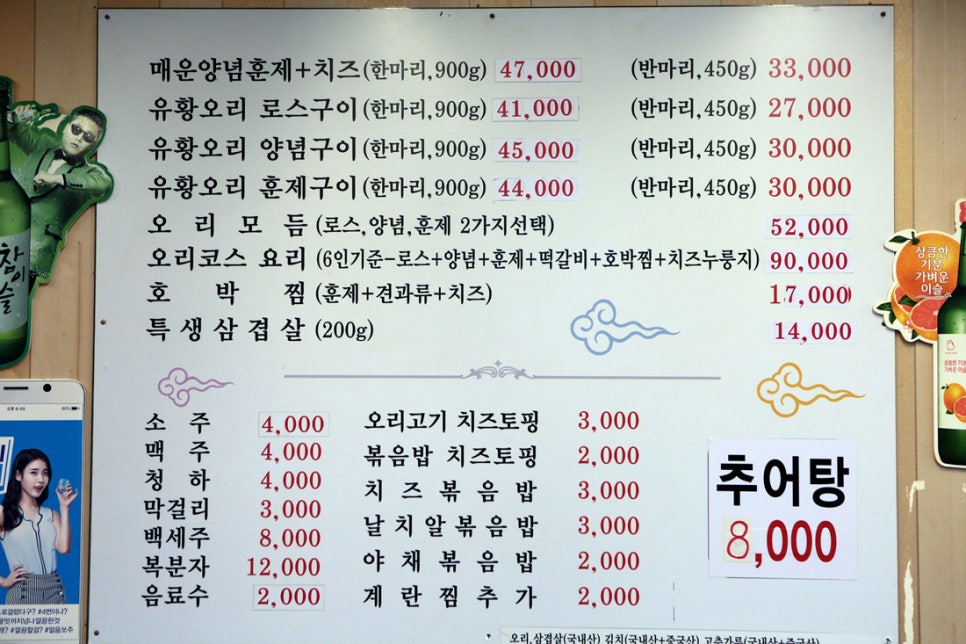 매운양념훈제+치즈(한마리,900g) 47,000 (반마리,450g) 33,000
유황오리 로스구이(한마리,900g) 41,000 (반마리,450g) 27,000
유황오리 양념구이(한마리,900g) 45,000 (반마리,450g) 30,000
유황오리 훈제구이(한마리,900g) 44,000 (반마리,450g) 30,000
오리모듬 (로스,양념,훈제 2가지선택) 52,000
오리코스 요리 (6인기준-로스+양념+훈제+떡갈비+호박찜+치즈누룽지) 90,000
호박찜 (훈제+견과류+치즈) 17,000
특생삼겹살 (200g) 14,000
소주 4,000
맥주 4,000
청하 4,000
막걸리 3,000
백세주 8,000
복분자 12,000
음료수 2,000
오리고기 치즈토핑 3,000
볶음밥 치즈토핑 2,000
치즈볶음밥 3,000
날치알볶음밥 3,000
야채볶음밥 2,000
계란찜추가 2,000
추어탕
8,000
오리,삼겹살(국내산) 김치(국내산+중국산) 고춧가루(국내산+중국산)
참이슬
상큼한
기분
가벼운
이슬